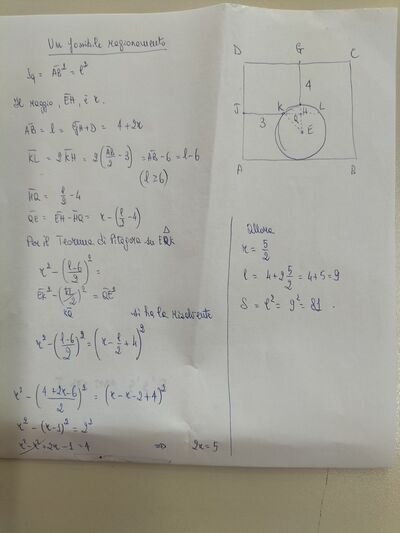 Un possibile ragionamento
Sq = AB² = l²
Il raggio, EH, è r.
AB = l = GH+D = 4+2r
KL = 2KH = 2(AB/2 - 3) = AB-6 = l-6
(l ≥ 6)
HQ = l/2 - 4
QE = EH - HQ = r - (l/2 - 4)
Per il Teorema di Pitagora su EQK
r² - ((l-6)/2)² =
EK² - (KL/2)² = QE²
KQ
si ha la risolvente
r² - ((l-6)/2)² = (r - l/2 + 4)²
r² - ((4+2r-6)/2)² = (r - r - 2 + 4)²
r² - (r-1)² = 2²
r² - r² + 2r - 1 = 4 ⇒ 2r = 5
D G C
4
J K H L
3 Q
E
A B
Allora
r = 5/2
l = 4 + 2 5/2 = 4+5 = 9
S = l² = 9² = 81.